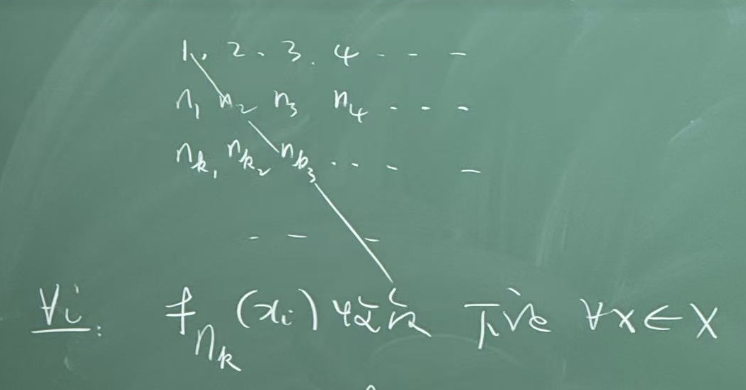 1, 2. 3. 4 - - -
n₁ n₂ n₃ n₄ - - -
n_{k₁} n_{k₂} n_{k₃} - - - -
- - -
∀i: f_{n_k}(x_i) 收敛 下证 ∀x∈X